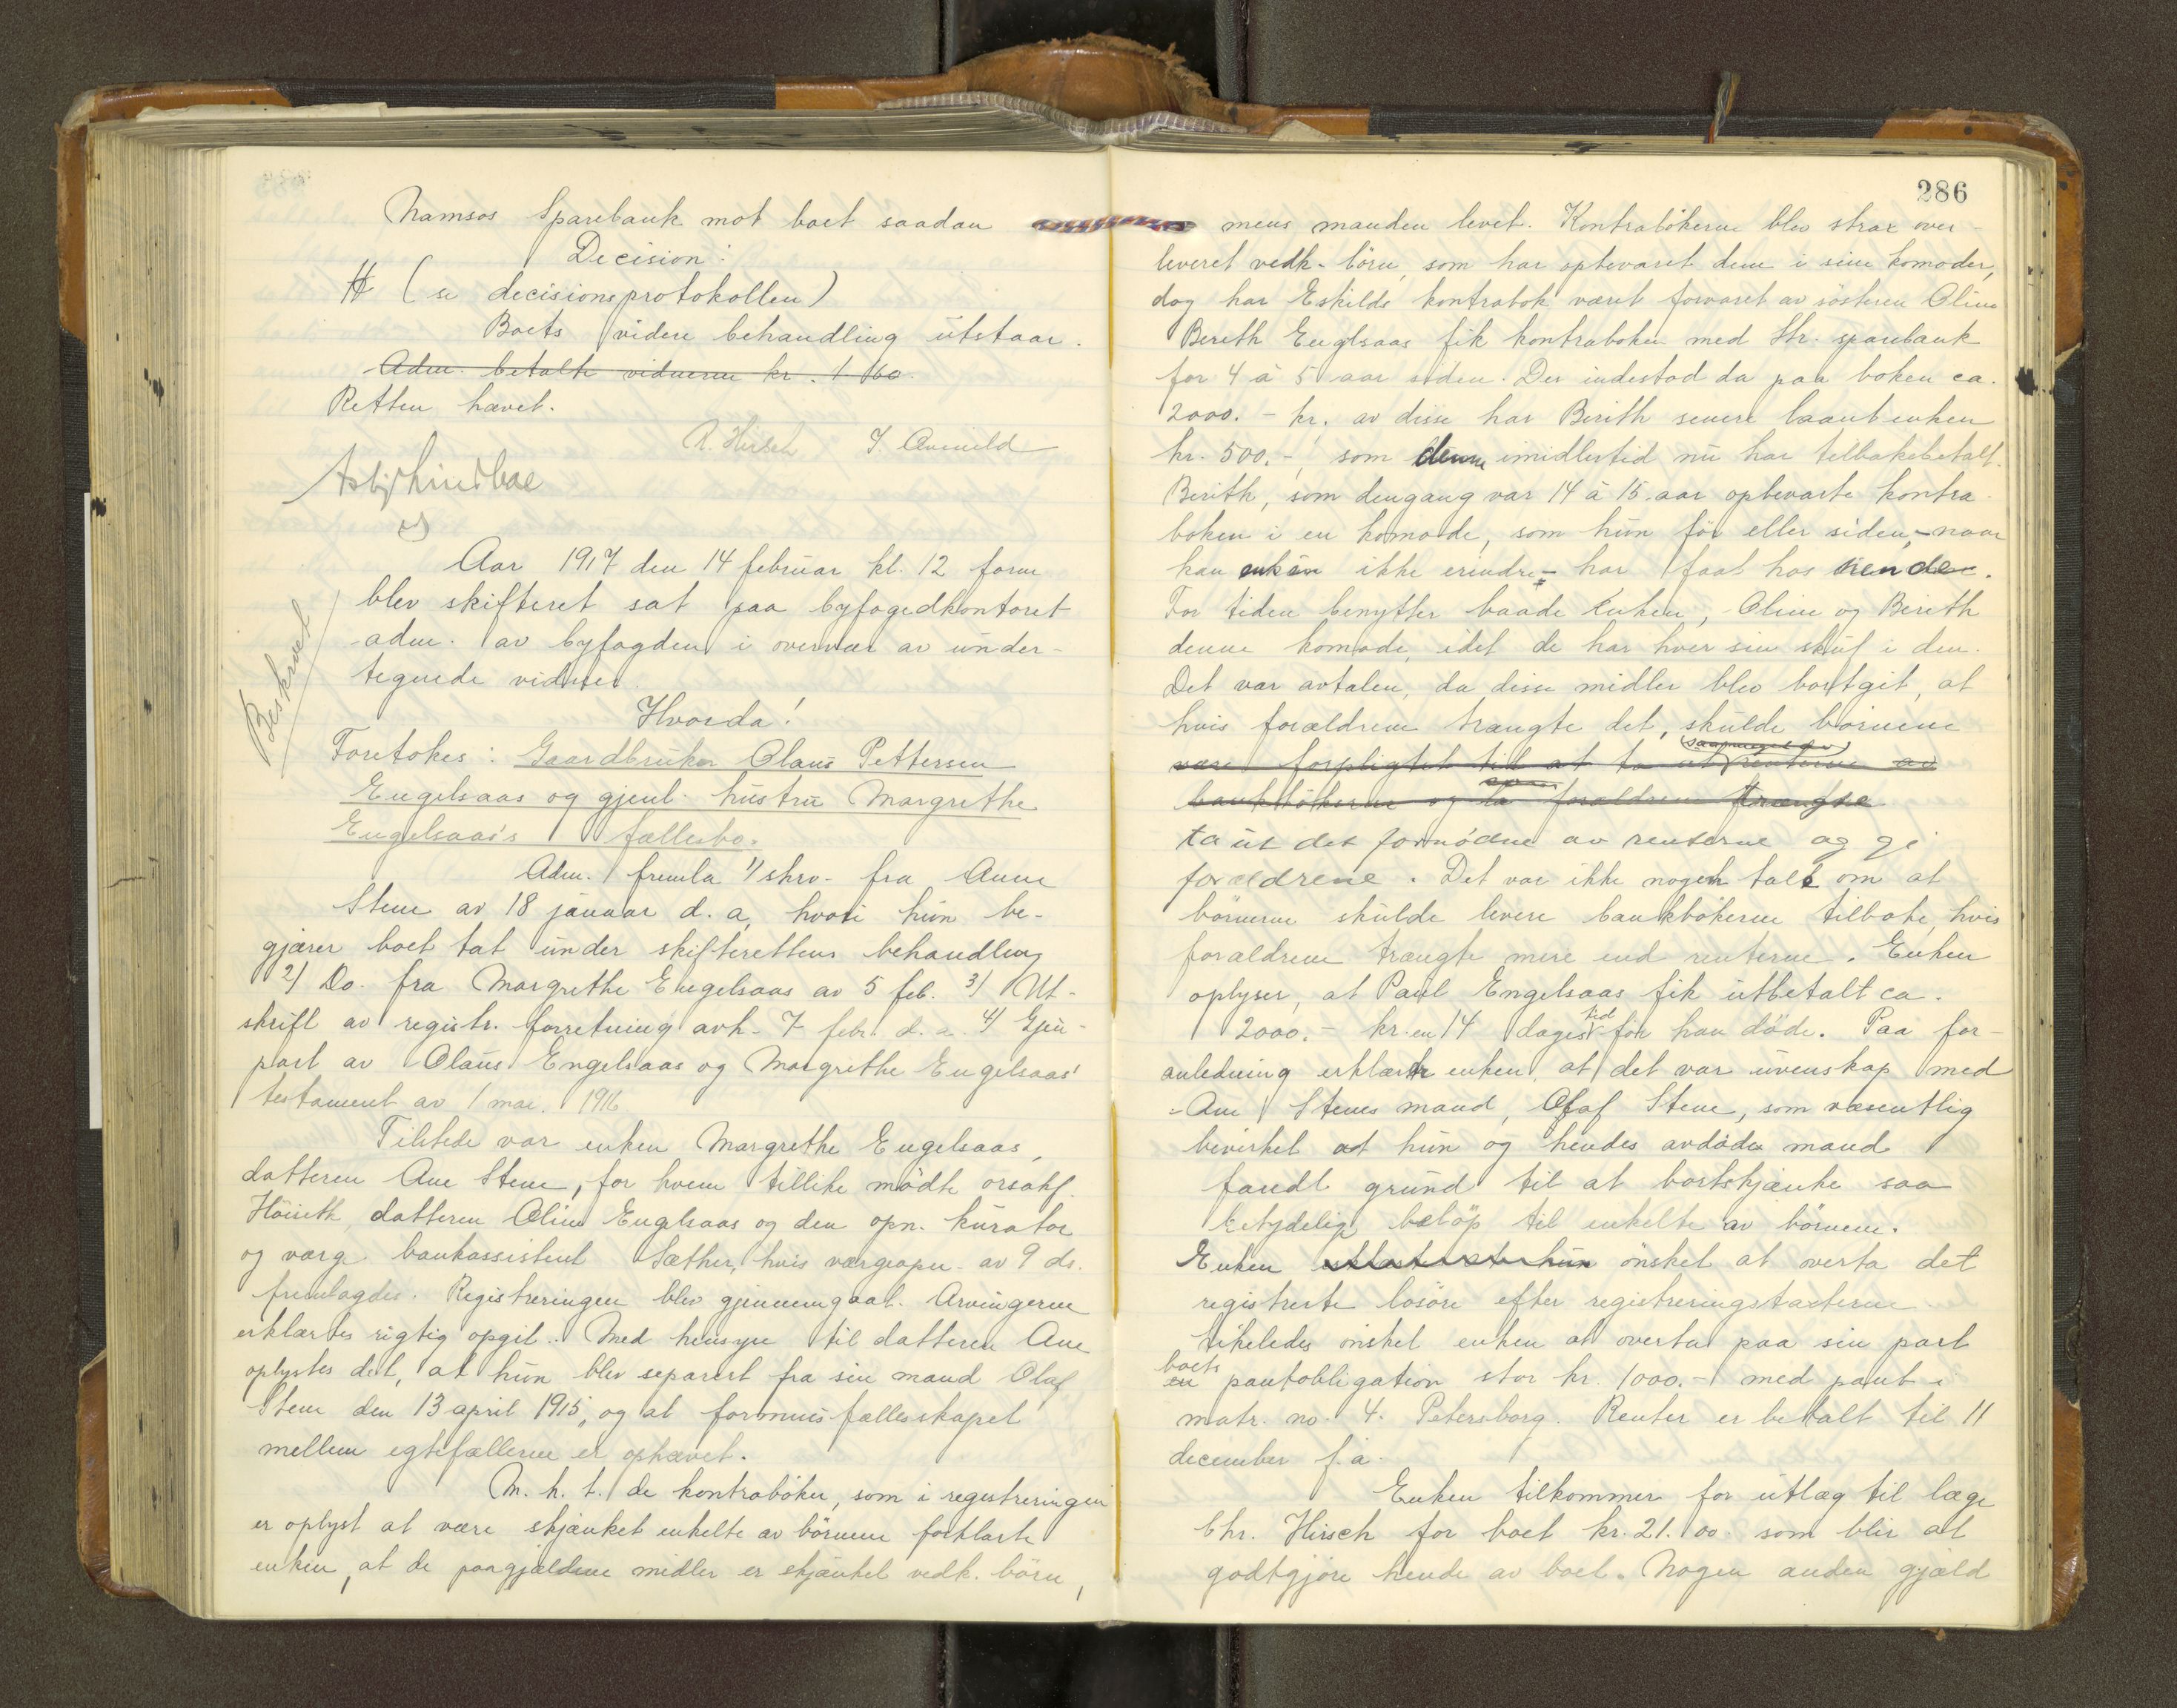 Namsos Sparebank mot boet saadan
Decision:
(se decisionsprotokollen)
Boets videre behandling utstaar.
Adm. betalte vidnerne kr. 1.60.
Retten hævet.
R. Hirsch
Aar 1917 den 14 februar kl. 12 form
blev skifteret sat paa byfogedkontoret
adm. av byfogden i overvær av under-
tegnede vidner.
Beskrevet
Hvorda!
Foretokes: Gaardbruker Olaus Pettersen
Engelsaas og gjenl. hustru Margrethe
Engelsaas's fællesbo.
Adm. fremla 1/ skrv. fra Anne
Stene av 18 januar d.a, hvori hun be-
gjærer boet tat under skifterettens behandling
2/ Do. fra Margrethe Engelsaas av 5 feb. 3/ Ut-
skrift av registr. forretning avh. 7 febr. d.a. 4/ Gjen-
part av Olaus Engelsaas og Margrethe Engelsaas'
testament av 1 mai. 1916
Tilstede var enken Margrethe Engelsaas,
datteren Ane Stene, for hvem tillike mødte orsakf.
datteren Oline Engelsaas og den opn. kurator
og værge bankassistent Sæther, hvis værgeopn. av 9 ds.
fremlagdes. Registreringen blev gjennemgaat. Arvingerne
erklærtes rigtig opgit. Med hensyn til datteren Ane
oplystes det, at hun blev separert fra sin mand Olaf
Stene den 13 april 1915, og at formuesfællesskapet
mellem egtefællerne er ophævet.
M.h.t. de kontrabøker, som i registreringen
er oplyst at være skjænket enkelte av børnene forklarte
enken, at de paagjældene midler er skjænket vedk. børn,
286
mens manden levet. Kontrabøkerne blev strax over-
leveret vedk. børn, som har opbevaret dem i sine komoder,
dog har Eskilds kontrabok været forvaret av søsteren Oline
Bereth Englsaas fik kontraboken med Str. sparebank
for 4 à 5 aar siden. Der indestod da paa boken ca.
2000.- kr. av disse har Berith senere laant enken
kr. 500.-, som denne imidlertid nu har tilbakebetalt.
Berith, som dengang var 14 à 15 aar opbevarte kontra-
boken i en komode, som hun før eller siden, - naar
kan enken ikke erindre - har faat hos hende.
For tiden benytter baade Enken, Oline og Bereth
denne komode, idet de har hver sin skuf i den.
Det var avtalen, da disse midler blev bortgit, at
hvis forældrene trængte det, skulde børnene
være forpligtet til at ta ut saameget av renterne av
bankbøkerne og la forældrene trængte
ta ut det fornødne av renterne og gi
forældrene. Det var ikke nogen tale om at
børnene skulde levere bankbøkerne tilbake, hvis
forældrene trængte mere end renterne. Enken
oplyser, at Paul Engelsaas fik utbetalt ca.
2000.- kr. en 14 dages tid før han døde. Paa for-
anledning erklærte enken, at det var uvenskap med
Ane Stenes mand, Olaf Stene, som væsentlig
bevirket at hun og hendes avdøde mand
fandt grund til at bortskjænke saa
betydelig beløp til enkelte av børnene.
Enken ønsket at overta det
registrerte løsøre efter registreringstaxterne
Likeledes ønsket enken at overta paa sin part
boets pantobligation stor kr. 1000.- med pant i
matr. no. 4. Petersborg. Renter er betalt til 11
december f.a.
Enken tilkommer for utlæg til læge
Chr. Hirsch for boet kr. 21.00 som blir at
godtgjøre hende av boet. Nogen anden gjæld